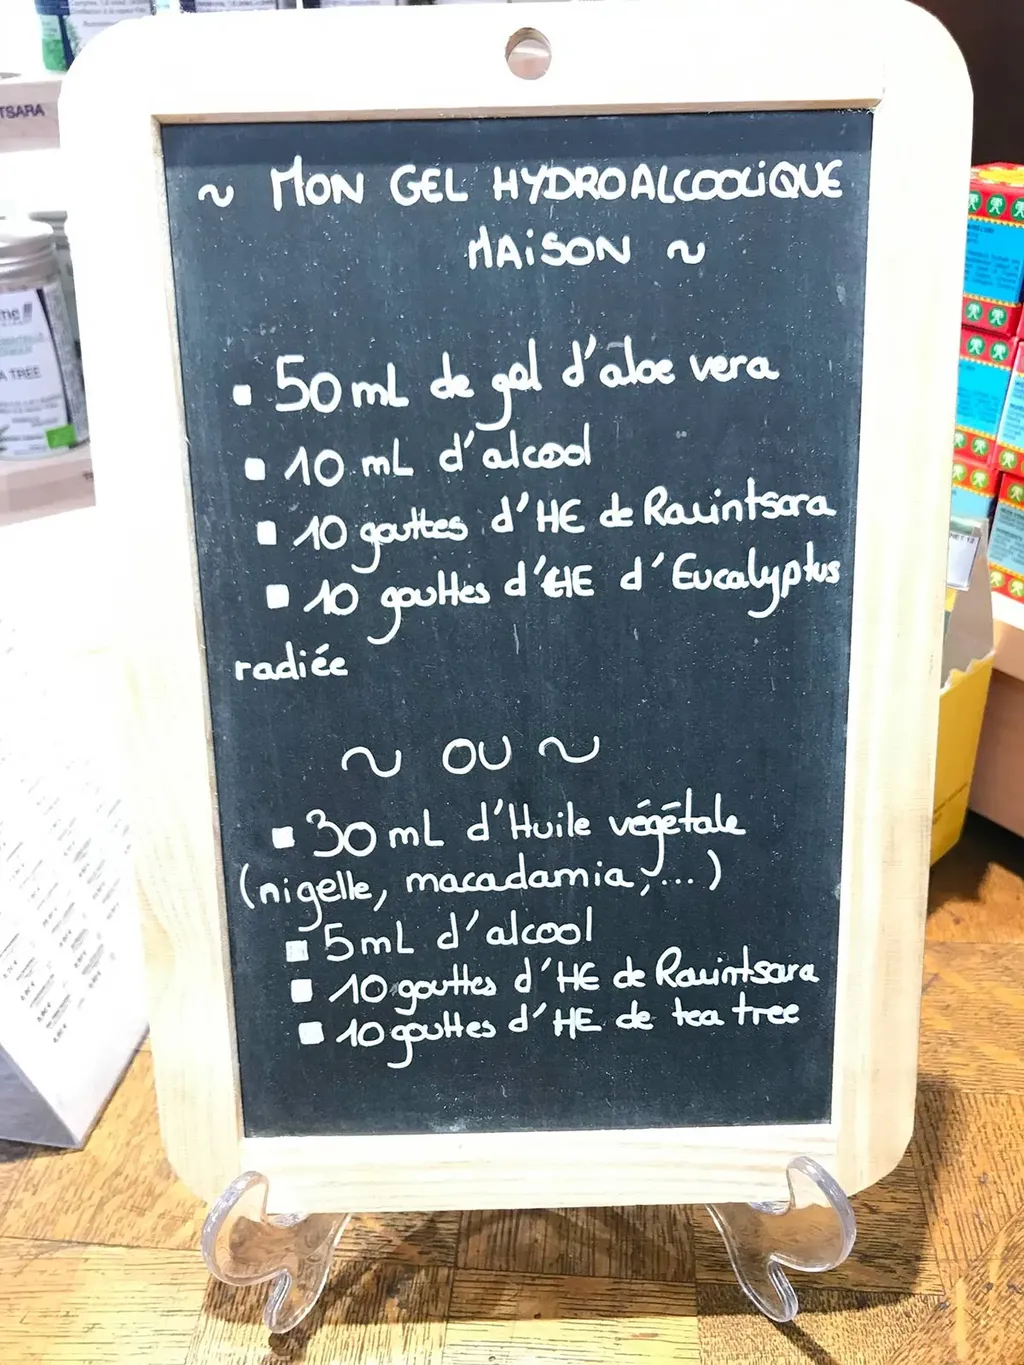 ~ MON GEL HYDROALCOOLIQUE
MAISON ~
▪ 50 mL de gel d'aloe vera
▪ 10 mL d'alcool
▪ 10 gouttes d'HE de Ravintsara
▪ 10 gouttes d'HE d'Eucalyptus
radiée
~ OU ~
▪ 30 mL d'Huile végétale
(nigelle, macadamia, ...)
▪ 5 mL d'alcool
▪ 10 gouttes d'HE de Ravintsara
▪ 10 gouttes d'HE de tea tree
TSARA
A TREE